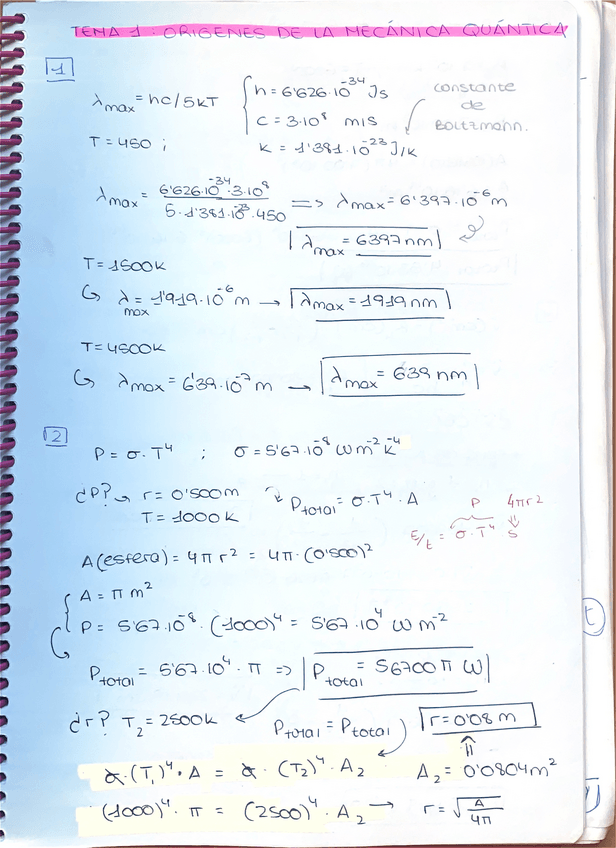 TEMA 1. ORIGENES DE LA MECÁNICA QUÁNTICA
1
λmax = hc/5kT { h = 6'626·10^-34 Js
c = 3·10^8 m/s
k = 1'381·10^-23 J/K
constante
de
Boltzmann.
T = 450 ;
λmax = 6'626·10^-34·3·10^8 / 5·1'381·10^-23·450 => λmax = 6'397·10^-6 m
λmax = 6397 nm
T = 1500K
↳ λmax = 1'919·10^-6 m → λmax = 1919 nm
T = 4500K
↳ λmax = 6'39·10^-7 m → λmax = 639 nm
2
P = σ·T^4 ; σ = 5'67·10^-8 W m^-2 K^-4
¿P? → r = 0'500m
T = 1000K
Ptotal = σ·T^4·A
P 4πr2
E/t = σ·T^4 S
A(esfera) = 4πr^2 = 4π·(0'500)^2
A = π m^2
P = 5'67·10^-8·(1000)^4 = 5'67·10^4 W m^-2
Ptotal = 5'67·10^4·π => Ptotal = 56700 π W
¿r? T2 = 2500K Ptotal = Ptotal r = 0'08 m
α·(T1)^4·A = α·(T2)^4·A2 A2 = 0'0804 m^2
(1000)^4·π = (2500)^4·A2 → r = √A/4π
t